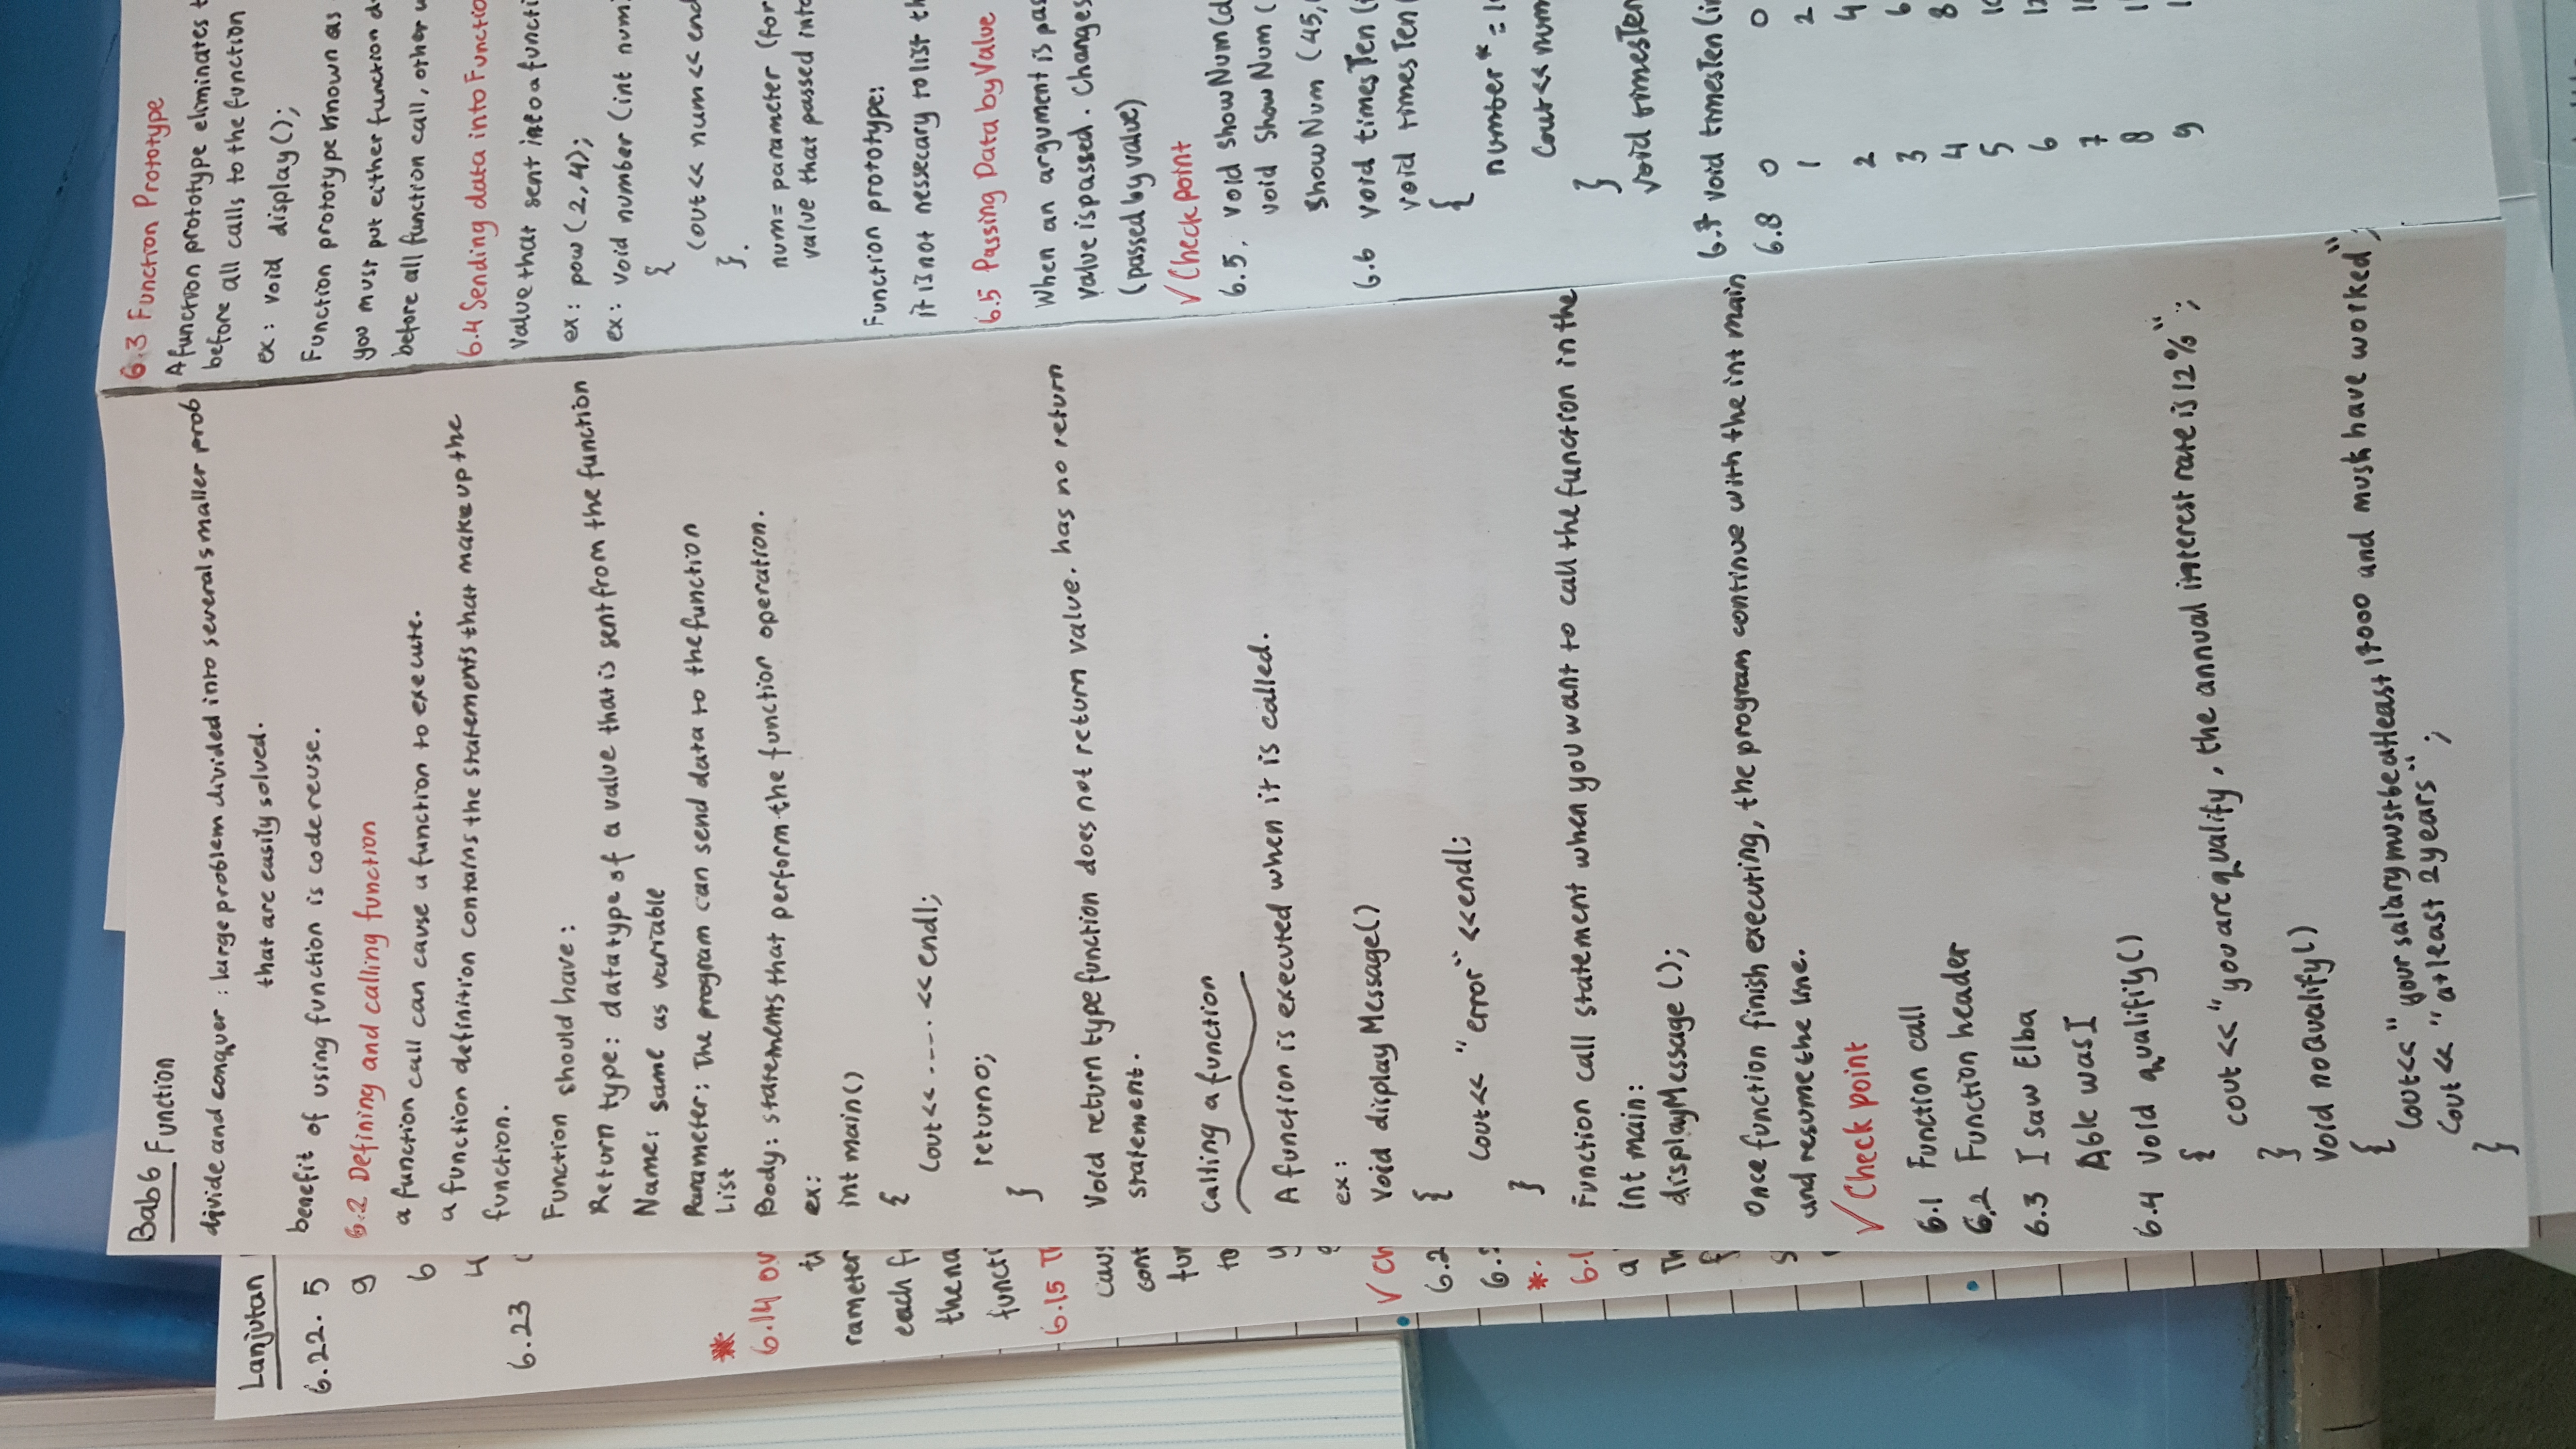 Bab 6 Function
divide and conquer : large problem divided into several smaller prob
that are easily solved.
benefit of using function is code reuse.
6.2 Defining and calling function
a function call can cause a function to execute.
a function definition contains the statements that make up the
function.
Function should have :
Return type: data type of a value that is sent from the function
Name: same as variable
Parameter: The program can send data to the function
List
Body: statements that perform the function operation.
ex:
int main()
{
cout<< ---- << endl;
return 0;
}
Void return type function does not return value. has no return
statement.
calling a function
A function is executed when it is called.
ex :
void display Message()
{
cout<< "error" <<endl;
}
Function call statement when you want to call the function in the
int main:
displayMessage ();
Once function finish executing, the program continue with the int main
and resume the line.
✓ Check point
6.1 Function call
6.2 Function header
6.3 I saw Elba
Able was I
6.4 void qualifiy()
{
cout << "you are qualify, the annual interest rate is 12%";
}
void noQualify()
{
cout<< "your salary must be atleast 17000 and must have worked";
cout << "atleast 2 years" ;
}
6.3 Function Prototype
A function prototype eliminates
before all calls to the function
ex: void display();
Function prototype known as
you must put either function
before all function call, other
6.4 Sending data into
Value that sent into a
ex: pow (2,4);
ex: void number (int num
{
cout<< num <<
}.
num= parameter (for
value that passed
Function prototype:
it is not nessecary to list
6.5 Passing Data by Value
When an argument is
value is passed. Changes
(passed by value)
✓ Check point
6.5. void showNum(
void ShowNum (
ShowNum (45,
6.6 void timesTen (
void timesTen (
{
number* =
cout<<
}
void timesTen
6.7 void timesTen (
6.8 0 0
1 2
2 4
3 6
4 8
5
6
7
8
9
Lanjutan
6.22. 5
9
6
4
6.23
6.14
rameter
each
6.15
to
✓
a